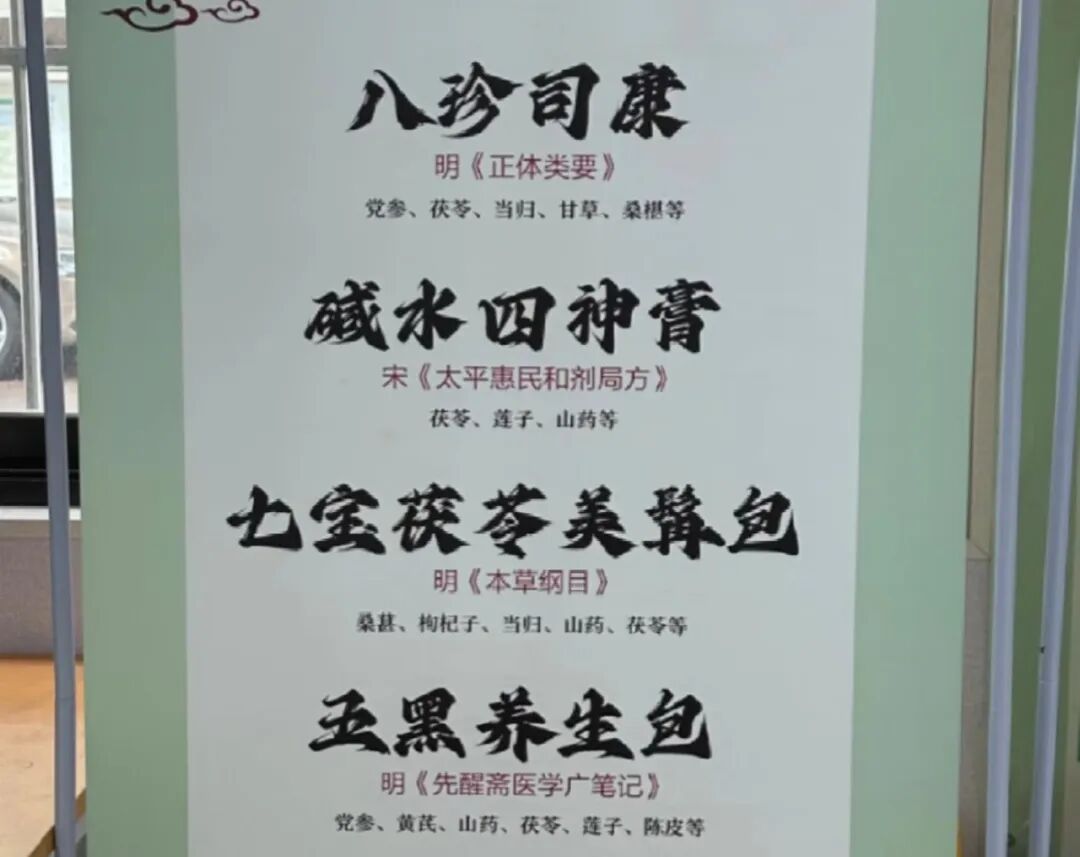 八珍司康
明《正体类要》
党参、茯苓、当归、甘草、桑椹等
碱水四神膏
宋《太平惠民和剂局方》
茯苓、莲子、山药等
七宝茯苓美髯包
明《本草纲目》
桑葚、枸杞子、当归、山药、茯苓等
五黑养生包
明《先醒斋医学广笔记》
党参、黄芪、山药、茯苓、莲子、陈皮等